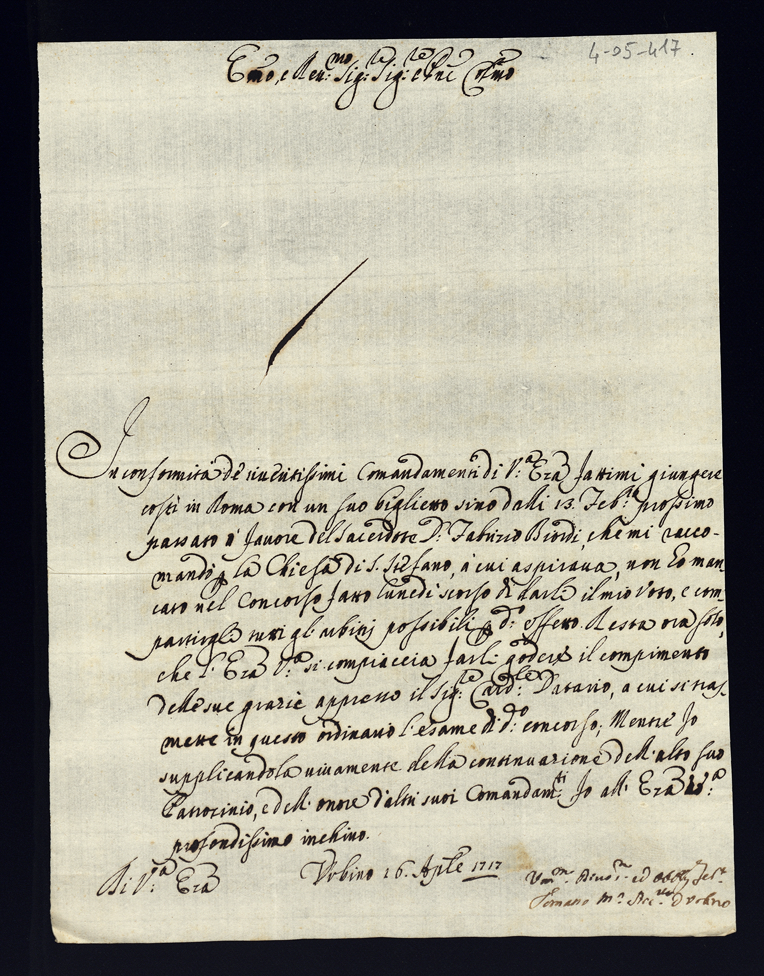 4-05-417
Emo, e Reu:mo Sig:re Sig:re e Pne Colmo
In conformità de riueritissimi Comandamenti di V:a Eza fattimi giungere
costì in Roma con un suo biglietto sino dalli 13. Feb:o prossimo
passato à fauore del Sacerdote D: Fabrizio Biondi, che mi racco-
mandò la Chiesa di S. Stefano, à cui aspiraua, non hò man-
cato nel Concorso fatto lunedì scorso di darle il mio Voto, e com-
partirgle tutti gl'arbitrij possibili d:o effetto. Resta ora solo,
che l'Eza V:a si compiaccia farli godere il compimento
delle sue grazie appresso il Sig:re Card:le Datario, a cui si tras-
mette in questo ordinario l'esame di d:o concorso; Mentre Io
supplicandola uiuamente della continuazione dell'alto suo
Patrocinio, e dell'onore d'altri suoi Comandam:ti Io all'Eza V:a
profondissimo inchino.
Di V:a Eza
Vrbino 16. Aple 1717
Vm:mo Diuo:mo ed Obblig:mo Ser:e
M:a Arc:uo d'Vrbino